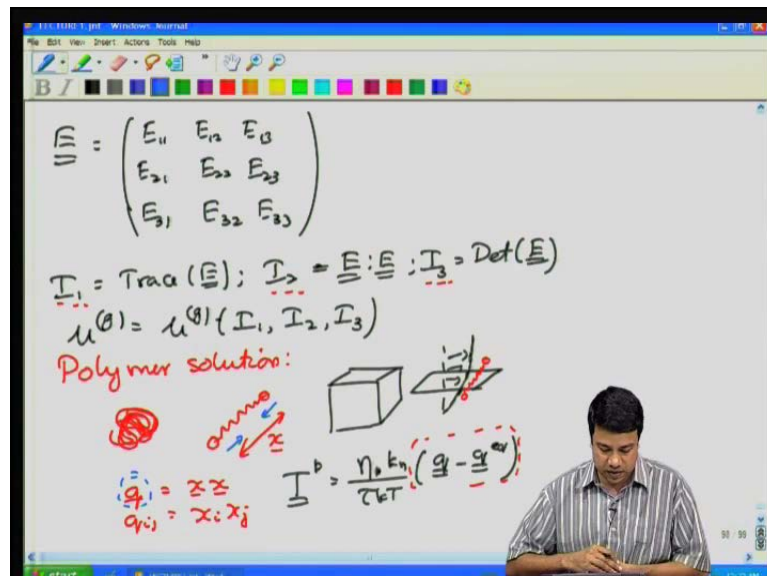 LECTURE 1.jnt - Windows Journal
File Edit View Insert Actions Tools Help
B I
E = ( E11 E12 E13
E21 E22 E23
E31 E32 E33 )
I1 = Trace (E); I2 = E:E; I3 = Det(E)
μ(g) = μ(g)(I1, I2, I3)
Polymer solution:
x
q = x x
qij = xi xj
T^p = η kn / τkT (q - q^eq)
90 / 99
start